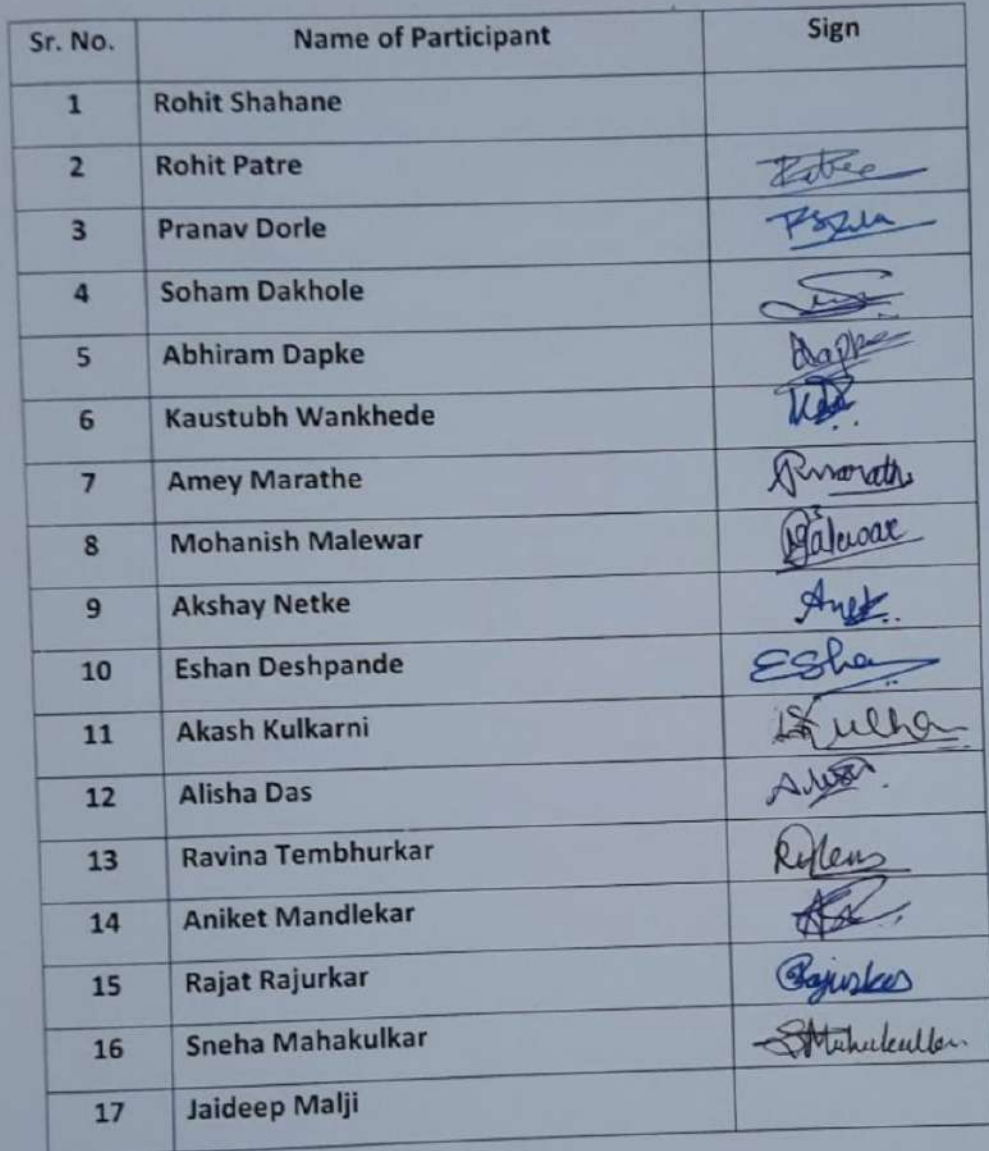 Sr. No. Name of Participant Sign
1 Rohit Shahane
2 Rohit Patre
3 Pranav Dorle
4 Soham Dakhole
5 Abhiram Dapke Dapke
6 Kaustubh Wankhede
7 Amey Marathe
8 Mohanish Malewar Malewar
9 Akshay Netke
10 Eshan Deshpande Esha
11 Akash Kulkarni
12 Alisha Das
13 Ravina Tembhurkar
14 Aniket Mandlekar
15 Rajat Rajurkar
16 Sneha Mahakulkar
17 Jaideep Malji